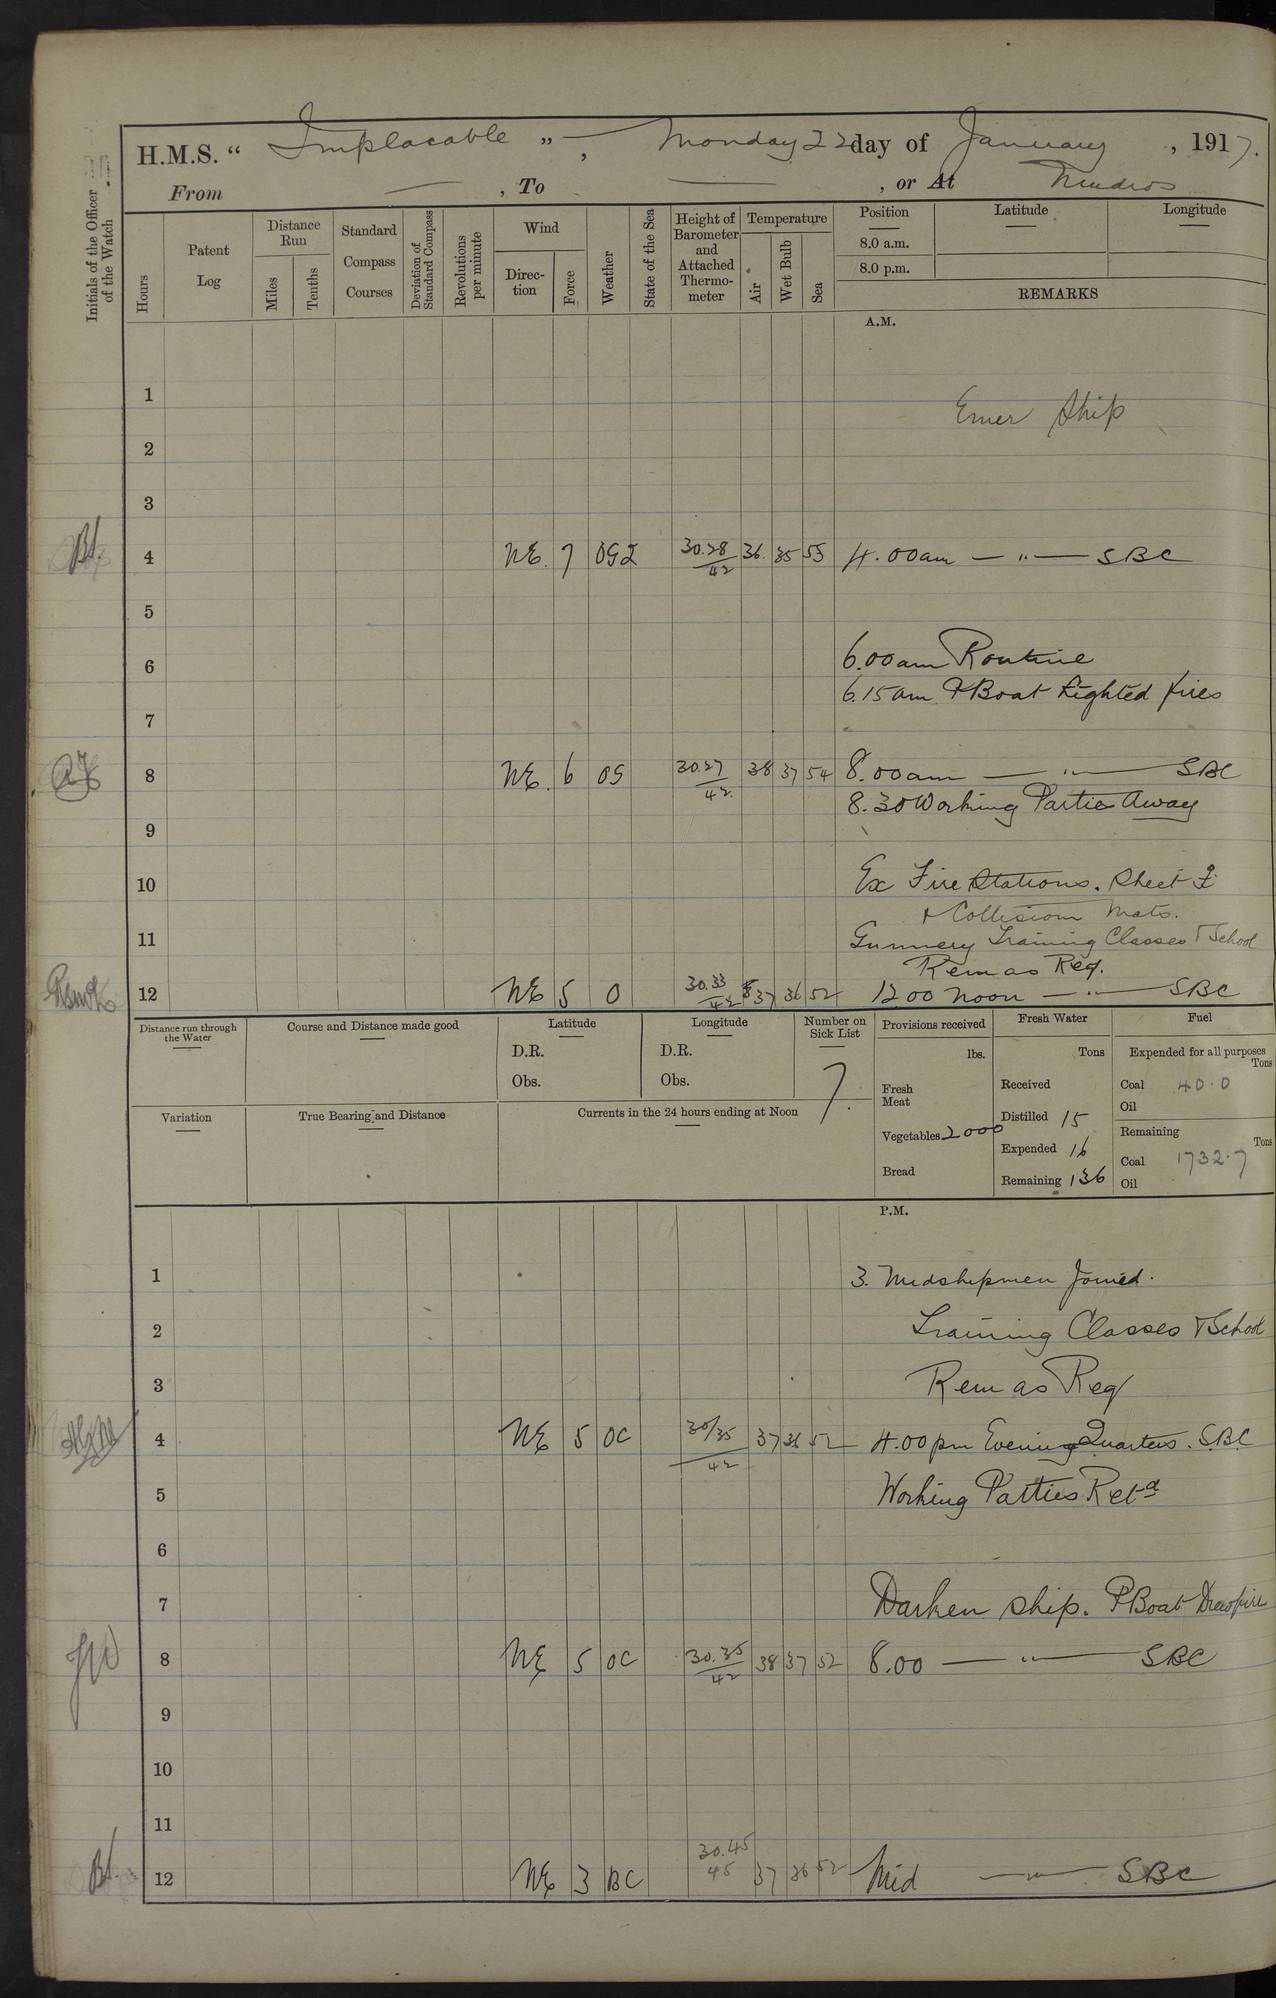 H.M.S. “ Implacable ” — , Monday 22 day of January , 1917.
From — , To — , or At Mudros
Initials of the Officer of the Watch
Hours
Patent Log
Distance Run
Miles
Tenths
Standard Compass Courses
Deviation of Standard Compass
Revolutions per minute
Wind
Direction
Force
Weather
State of the Sea
Height of Barometer and Attached Thermometer
Temperature
Air
Wet Bulb
Sea
Position
8.0 a.m.
8.0 p.m.
Latitude
Longitude
REMARKS
A.M.
1
Ship
2
3
Bt. 4 NE. 7 OGQ 30.28/42 36. 35 55 4.00am — " — SBC
5
6 6.00am Routine
6.15am PBoat Lighted fires
7
8 NE. 6 OG 30.27/42 38 37 54 8.00am — " — SBC
8.30 Working Parties Away
9
10 Ex Fire Stations. Sheet
+ Collision Mats.
11 Gunnery Training Classes + School
Rem as Req.
12 NE 5 O 30.33/42 37 36 52 1200 Noon — " — SBC
Distance run through the Water
Course and Distance made good
Latitude
D.R.
Obs.
Longitude
D.R.
Obs.
Number on Sick List
7.
Variation
True Bearing and Distance
Currents in the 24 hours ending at Noon
Provisions received
lbs.
Fresh Meat
Vegetables 2000
Bread
Fresh Water
Tons
Received
Distilled 15
Expended 16
Remaining 136
Fuel
Expended for all purposes
Tons
Coal 40.0
Oil
Remaining
Tons
Coal 1732.7
Oil
P.M.
1 3. Midshipmen Joined.
2 Training Classes + School
3 Rem as Req
4 NE 5 OC 30/35/42 37 36 52 4.00pm Evening Quarters. SBC
5 Working Parties Retd
6
7 Darken Ship. PBoat Drew fires
8 NE 5 OC 30.35/42 38 37 52 8.00 — " — SBC
9
10
11
Bt. 12 NE 3 BC 30.45 45 37 36 52 Mid — " — SBC